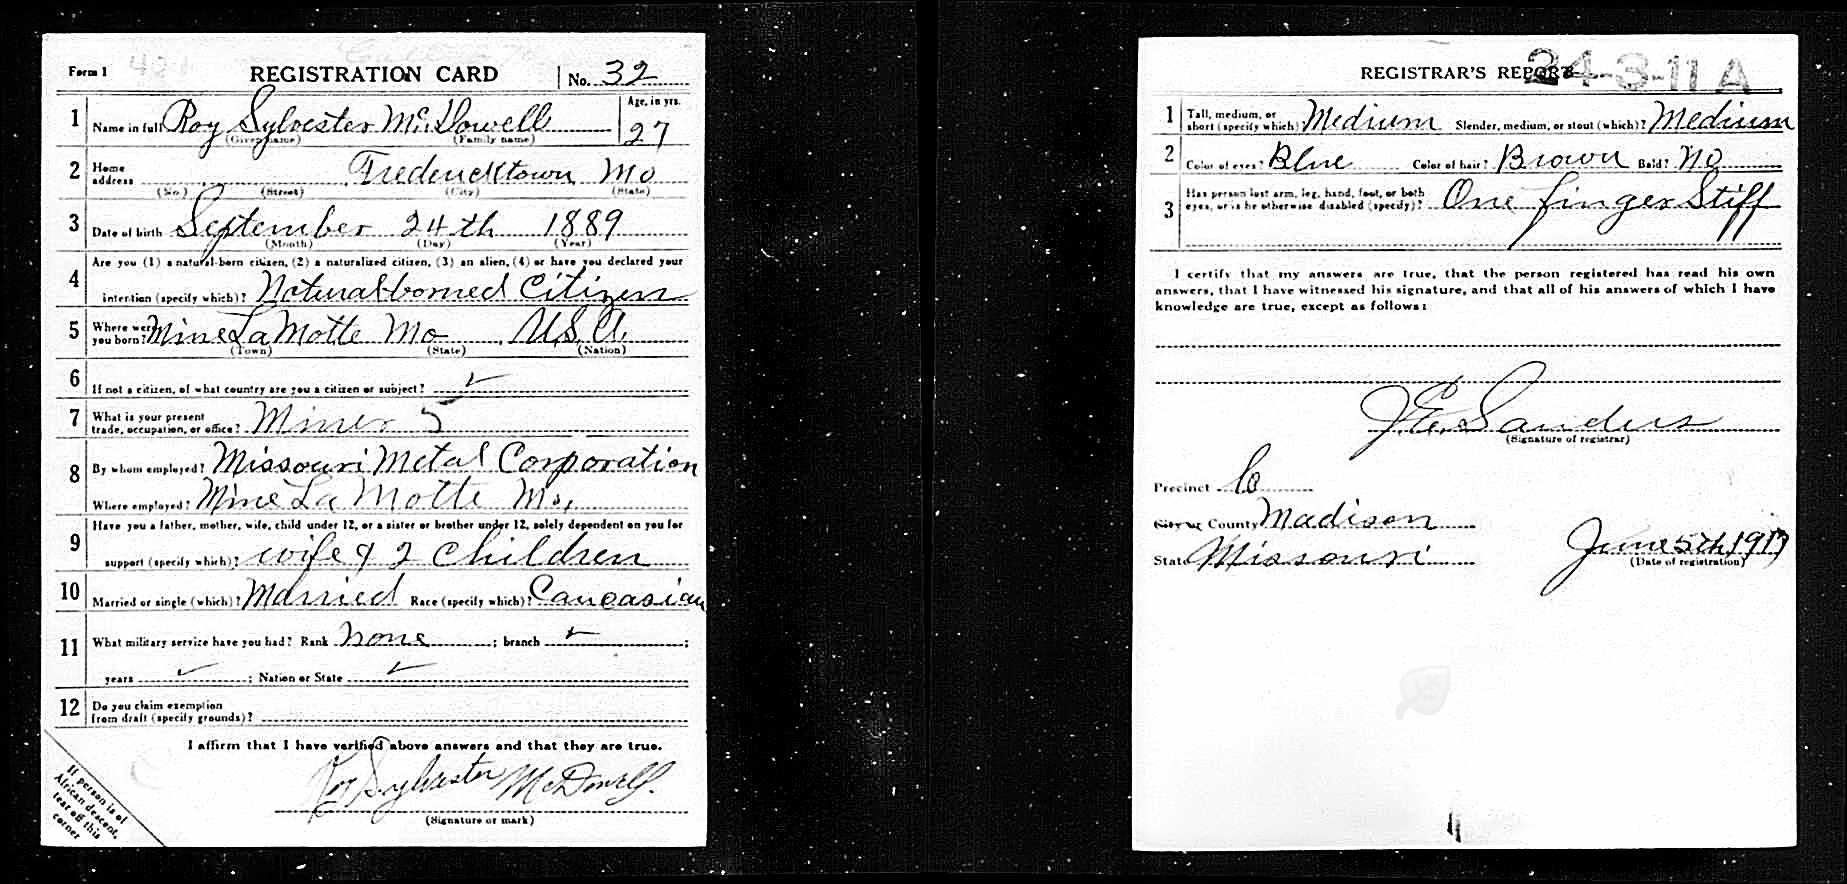 Form 1 421 REGISTRATION CARD No. 32
1 Name in full Roy Sylvester McDowell Age, in yrs. 27
(Given name) (Family name)
2 Home address Fredericktown Mo
(No.) (Street) (City) (State)
3 Date of birth September 24th 1889
(Month) (Day) (Year)
4 Are you (1) a natural-born citizen, (2) a naturalized citizen, (3) an alien, (4) or have you declared your
intention (specify which)? Naturalborned Citizen
5 Where were you born? Mine La Motte Mo, U.S.A.
(Town) (State) (Nation)
6 If not a citizen, of what country are you a citizen or subject? ✓
7 What is your present trade, occupation, or office? Miner 5
8 By whom employed? Missouri Metal Corporation
Where employed? Mine La Motte Mo,
9 Have you a father, mother, wife, child under 12, or a sister or brother under 12, solely dependent on you for
support (specify which)? wife & 2 Children
10 Married or single (which)? Married Race (specify which)? Caucasian
11 What military service have you had? Rank none ; branch ✓ ;
years ✓ ; Nation or State ✓
12 Do you claim exemption
from draft (specify grounds)?
I affirm that I have verified above answers and that they are true.
Roy Sylvester McDowell.
(Signature or mark)
If person is of
African descent,
tear off this
corner
24-3-11 A
REGISTRAR'S REPORT
1 Tall, medium, or short (specify which)? Medium Slender, medium, or stout (which)? Medium
2 Color of eyes? Blue Color of hair? Brown Bald? No
3 Has person lost arm, leg, hand, foot, or both
eyes, or is he otherwise disabled (specify)? One finger Stiff
I certify that my answers are true, that the person registered has read his own
answers, that I have witnessed his signature, and that all of his answers of which I have
knowledge are true, except as follows:
J.E. Sanders
(Signature of registrar)
Precinct
City or County Madison
State Missouri June 5th 1917
(Date of registration)